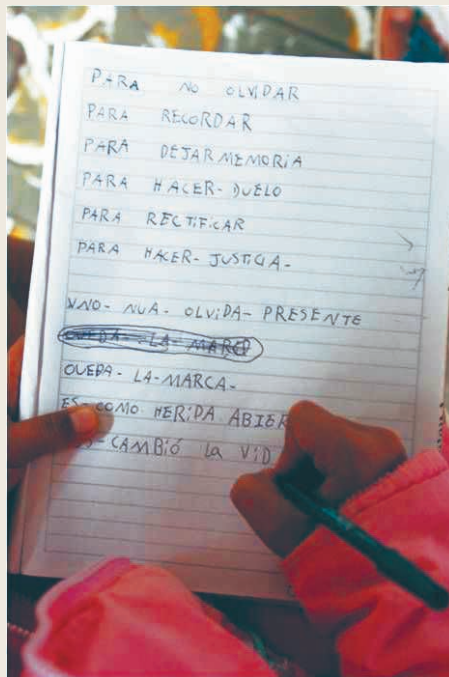 PARA NO OLVIDAR
PARA RECORDAR
PARA DEJAR MEMORIA
PARA HACER- DUELO
PARA RECTIFICAR
PARA HACER- JUSTICIA-
UNO- NUA- OLVIDA- PRESENTE
QUEDA- LA- MARCA
QUEDA- LA-MARCA-
ES- COMO HERIDA ABIER
CAMBIÓ La VID